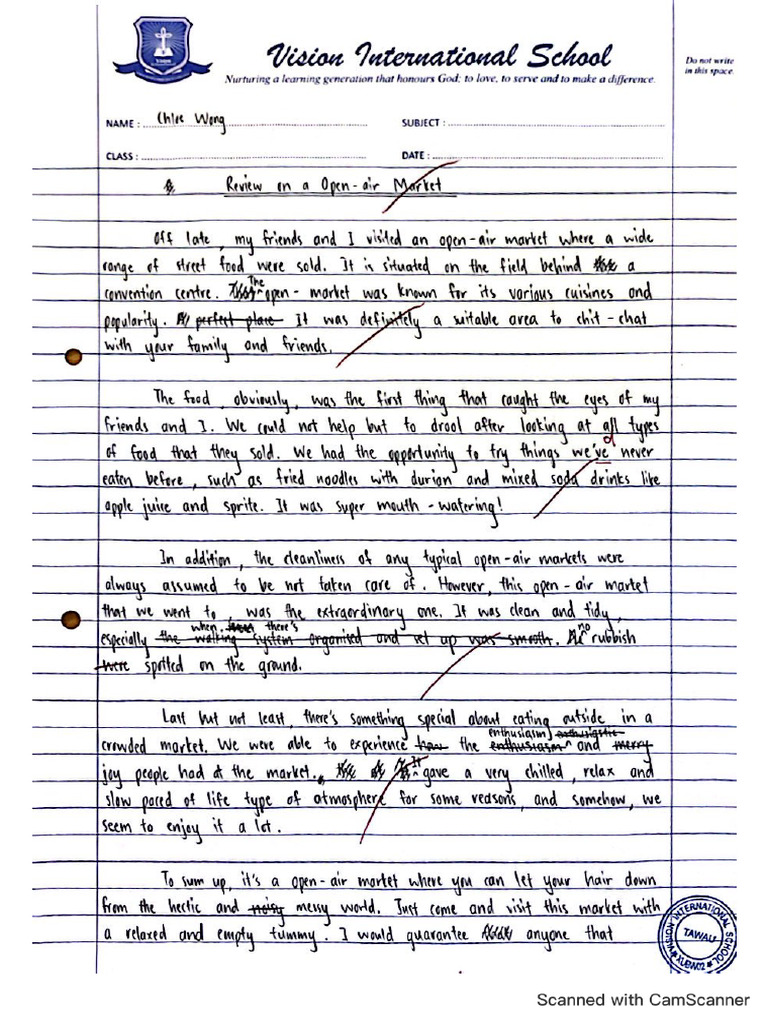 Vision International School
Nurturing a learning generation that honours God; to love, to serve and to make a difference.
Do not write
in this space.
NAME : Chloe Wong
SUBJECT :
CLASS :
DATE :
Review on a Open-air Market
Off late, my friends and I visited an open-air market where a wide
range of street food were sold. It is situated on the field behind a
convention centre. The open- market was known for its various cuisines and
popularity. perfect place It was definitely a suitable area to chit-chat
with your family and friends.
The food, obviously, was the first thing that caught the eyes of my
friends and I. We could not help but to drool after looking at all types
of food that they sold. We had the opportunity to try things we've never
eaten before, such as fried noodles with durian and mixed soda drinks like
apple juice and sprite. It was super mouth-watering!
In addition, the cleanliness of any typical open-air markets were
always assumed to be not taken care of. However, this open-air market
that we went to was the extraordinary one. It was clean and tidy,
when there's no
especially the walking system organised and set up was smooth. rubbish
were spotted on the ground.
Last but not least, there's something special about eating outside in a
enthusiasm enthusiastic
crowded market. We were able to experience how the enthusiasm and merry
joy people had at the market. It gave a very chilled, relax and
slow paced of life type of atmosphere for some reasons, and somehow, we
seem to enjoy it a lot.
To sum up, it's a open-air market where you can let your hair down
from the hectic and noisy messy world. Just come and visit this market with
a relaxed and empty tummy. I would guarantee anyone that
VISION INTERNATIONAL SCHOOL
TAWAU
XLBW02
Scanned with CamScanner